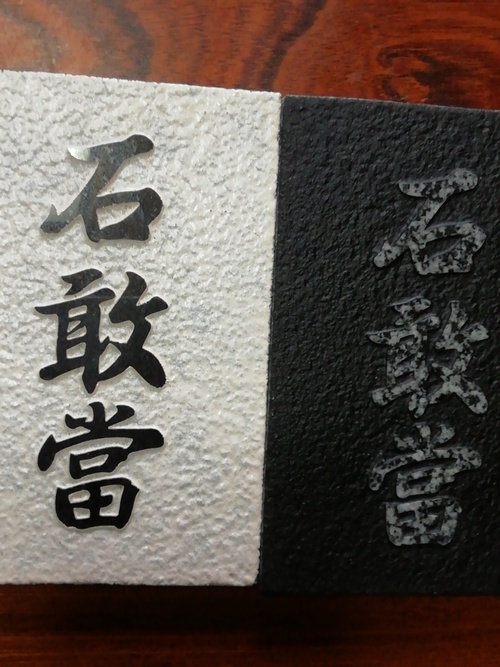 石敢當
石敢當